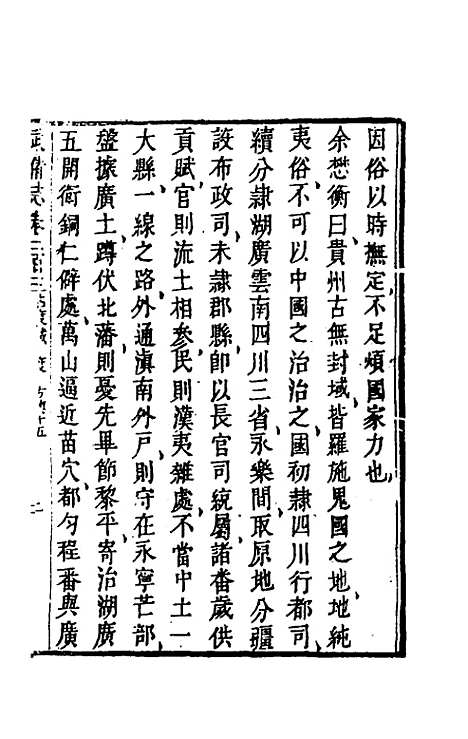 因俗以時撫定不足煩國家力也
余懋衡曰貴州古無封域皆羅施鬼國之地地純
夷俗不可以中國之治治之國初隸四川行都司
續分隸湖廣雲南四川三省永樂間取原地分疆
設布政司未隸郡縣卽以長官司統屬諸畨歲供
貢賦官則流土相參民則漢夷雜處不當中土一
大縣一線之路外通滇南外戸則守在永寧芒部
盤據廣土蹲伏北藩則憂先畢節黎平寄治湖廣
五開衛銅仁僻處萬山逼近苗穴都勻程番與廣
武備志卷二百